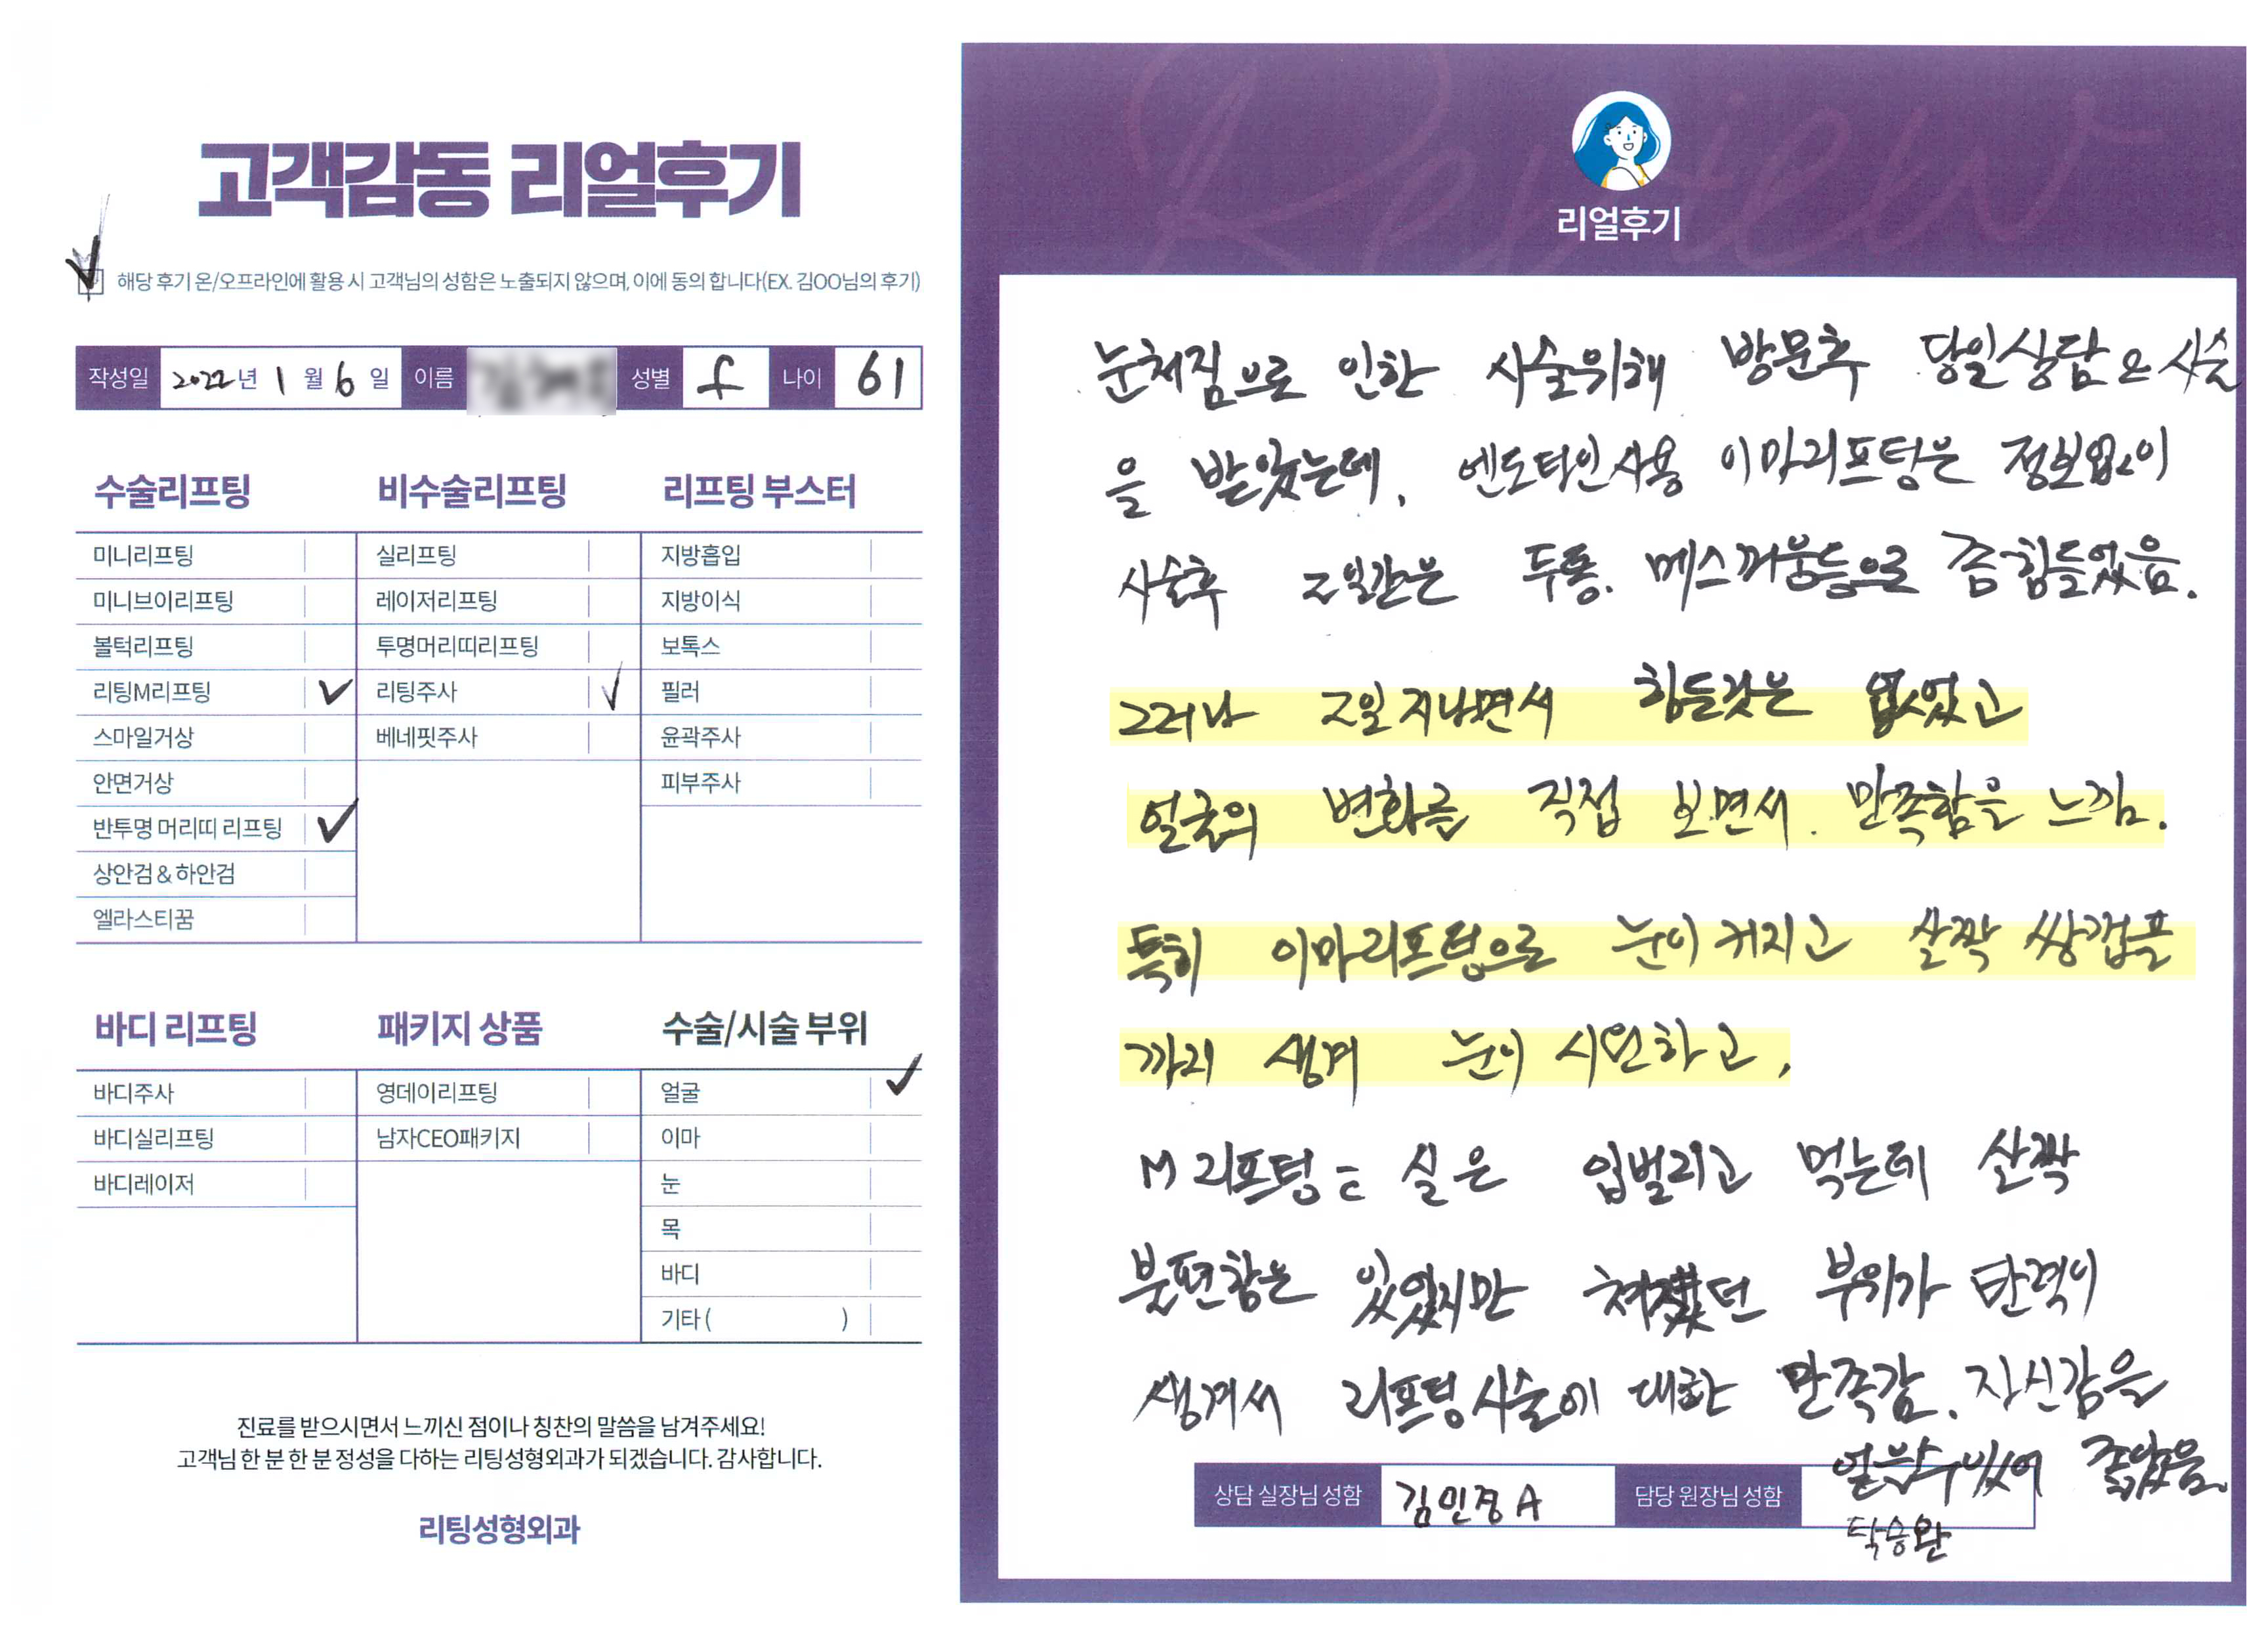 고객감동 리얼후기
해당 후기 온/오프라인에 활용 시 고객님의 성함은 노출되지 않으며, 이에 동의 합니다(EX. 김OO님의 후기)
작성일 2022년 1월 6일 이름 성별 f 나이 61
수술리프팅
미니리프팅
미니브이리프팅
볼턱리프팅
리팅M리프팅
스마일거상
안면거상
반투명 머리띠 리프팅
상안검 & 하안검
엘라스티꿈
비수술리프팅
실리프팅
레이저리프팅
투명머리띠리프팅
리팅주사
베네핏주사
리프팅 부스터
지방흡입
지방이식
보톡스
필러
윤곽주사
피부주사
바디 리프팅
바디주사
바디실리프팅
바디레이저
패키지 상품
영데이리프팅
남자CEO패키지
수술/시술 부위
얼굴
이마
눈
목
바디
기타 ( )
진료를 받으시면서 느끼신 점이나 칭찬의 말씀을 남겨주세요!
고객님 한 분 한 분 정성을 다하는 리팅성형외과가 되겠습니다. 감사합니다.
리팅성형외과
Review
리얼후기
눈처짐으로 인한 시술위해 방문후 당일상담 으 시술
을 받았는데, 엔도타인사용 이마리프팅은 정보없이
시술후 2일간은 두통. 메스꺼움등으로 좀 힘들었음.
그러나 2일 지나면서 힘든것은 없었고
얼굴의 변화를 직접 보면서. 만족함을 느낌.
특히 이마리프팅으로 눈이 커지고 살짝 쌍갭플
까지 생겨 눈이 시원하고,
M 리프팅 = 실은 입벌리고 먹는데 살짝
불편함은 있었지만 처졌던 부위가 탄력이
생겨서 리프팅시술에 대한 만족감. 자신감을
얻을수있어 좋았음.
상담 실장님 성함 김민경 A 담당 원장님 성함
탁승완